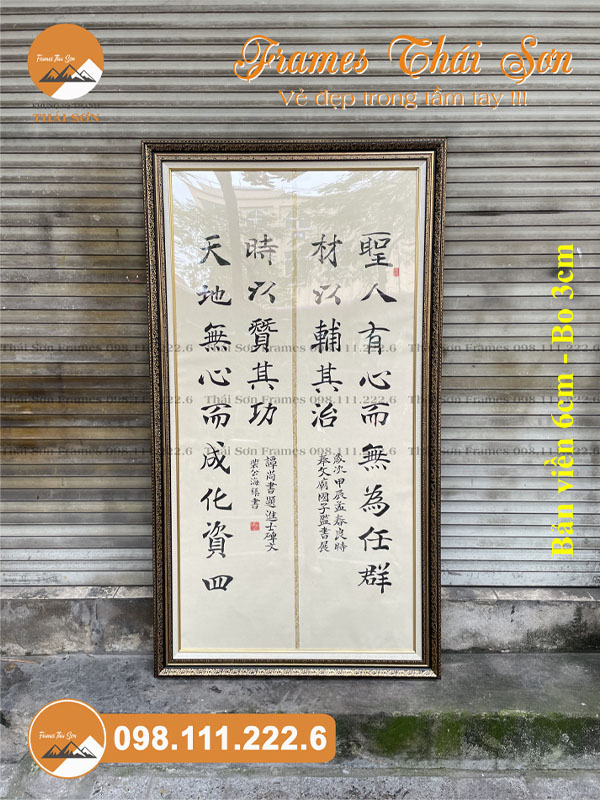 Frames Thái Sơn
KHUNG TRANH
THÁI SƠN
Frames Thái Sơn
Vẻ đẹp trong tầm tay !!!
聖人有心而無為任群
材以輔其治
歲次甲辰孟春良時
奉文廟國子監書展
天地無心而成化資四
時以贊其功
譚尚書題進士碑文
海
書
Thái Sơn Frames 098.111.222.6 Thái Sơn Frames 098.111.222.6 Thái Sơn Frames 098.111.222.6
Bản viền 6cm - Bo 3cm
Frames Thái Sơn
098.111.222.6